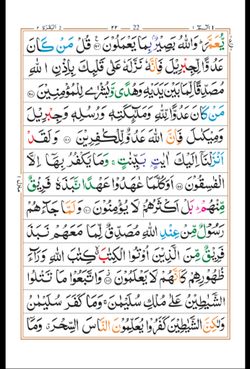 الٓمّٓ ١ 22 ٢٢ البقرة ٢
يُّعَمَّرَ ؕ وَاللّٰهُ بَصِيْرٌۢ بِمَا يَعْمَلُوْنَ ۝ قُلْ مَنْ كَانَ
عَدُوًّا لِّجِبْرِيْلَ فَاِنَّهٗ نَزَّلَهٗ عَلٰى قَلْبِكَ بِاِذْنِ اللّٰهِ
مُصَدِّقًا لِّمَا بَيْنَ يَدَيْهِ وَهُدًى وَّبُشْرٰى لِلْمُؤْمِنِيْنَ ۝
مَنْ كَانَ عَدُوًّا لِّلّٰهِ وَمَلٰٓئِكَتِهٖ وَرُسُلِهٖ وَجِبْرِيْلَ
وَمِيْكٰىلَ فَاِنَّ اللّٰهَ عَدُوٌّ لِّلْكٰفِرِيْنَ ۝ وَلَقَدْ
اَنْزَلْنَاۤ اِلَيْكَ اٰيٰتٍۭ بَيِّنٰتٍ ۚ وَمَا يَكْفُرُ بِهَاۤ اِلَّا
الْفٰسِقُوْنَ ۝ اَوَكُلَّمَا عٰهَدُوْا عَهْدًا نَّبَذَهٗ فَرِيْقٌ
مِّنْهُمْ ؕ بَلْ اَكْثَرُهُمْ لَا يُؤْمِنُوْنَ ۝ وَلَمَّا جَآءَهُمْ
رَسُوْلٌ مِّنْ عِنْدِ اللّٰهِ مُصَدِّقٌ لِّمَا مَعَهُمْ نَبَذَ
فَرِيْقٌ مِّنَ الَّذِيْنَ اُوْتُوا الْكِتٰبَ ۙ كِتٰبَ اللّٰهِ وَرَآءَ
ظُهُوْرِهِمْ كَاَنَّهُمْ لَا يَعْلَمُوْنَ ۝ وَاتَّبَعُوْا مَا تَتْلُوا
الشَّيٰطِيْنُ عَلٰى مُلْكِ سُلَيْمٰنَ ۚ وَمَا كَفَرَ سُلَيْمٰنُ
وَلٰكِنَّ الشَّيٰطِيْنَ كَفَرُوْا يُعَلِّمُوْنَ النَّاسَ السِّحْرَ ۗ وَمَاۤ